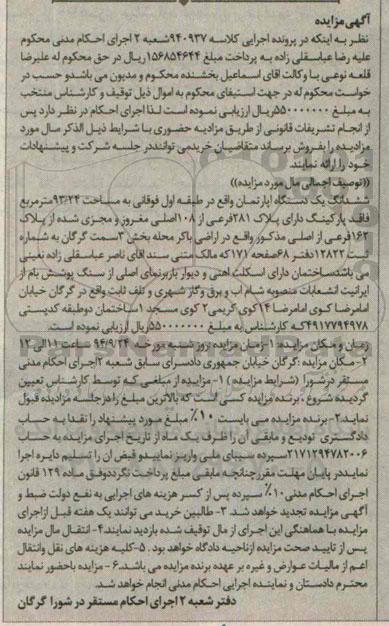 آگهی مزایده
نظر به اینکه در پرونده اجرایی کلاسه ۹۴۰۹۳۷شعبه ۲ اجرای احکام مدنی محکوم
علیه رضا عباسقلی زاده به پرداخت مبلغ ۱۵۶۸۵۴۶۴۴ریال در حق محکوم له علیرضا
قلعه نوعی با وکالت اقای اسماعیل بخشنده محکوم و مدیون می باشدو حسب در
خواست محکوم له در جهت استیفای محکوم به اموال ذیل توقیف و کارشناس منتخب
به مبلغ ۵۵۰۰۰۰۰۰۰ریال ارزیابی نموده است لذا اجرای احکام در نظر دارد پس
از انجام تشریفات قانونی از طریق مزادیه حضوری با شرایط ذیل الذکر مال مورد
مزادیده را بفروش برساند متقاضیان خریدمی توانند در جلسه شرکت و پیشنهادات
خود را ارائه نمایند.
((توصیف اجمالی مال مورد مزایده))
ششدانگ یک دستگاه اپارتمان واقع در طبقه اول فوقانی به مساحت ۹۳/۲۴مترمربع
فاقد پارکینگ دارای پلاک ۲۸۱فرعی از ۱۰۸اصلی مفروز و مجزی شده از پلاک
۱۶۲فرعی از اصلی مذکور واقع در اراضی باکر محله بخش ۳سمت گرگان به شماره
ثبت ۱۲۸۲۲دفتر ۶۸صفحه ۱۷۱که مالک متنی سند اقای ناصر عباسقلی زاده نعینی
می باشدساختمان دارای اسکلت اهنی و دیوار باربرنمای اصلی از سنگ پوشش بام از
ایرانیت انشعابات منصوبه شام اب و برق وگاز شهری و تلف ثابت واقع در گرگان خیابان
امامرضا کوی امامرضا ۱۴کوی کریمی۲ کوی مسجد ۱ساختمان دوطبقه کدپستی
۴۹۱۷۷۹۴۹۷۸که کارشناس به مبلغ ۵۵۰۰۰۰۰۰۰ریال ارزیابی نموده است.
زمان و مکان مزایده: ۱-زمان مزایده روز شنبه مورخه ۹۴/۹/۲۴ ساعت ۱۱الی ۱۲
۲-مکان مزایده :گرگان خیابان جمهوری دادسرای سابق شعبه ۲اجرای احکام مدنی
مستقر درشورا (شرایط مزایده) ۱-مزایده از مبلغی که توسط کارشناس تعیین
گردیده شروع ، برنده مزایده کسی است که بالاترین مبلغ را در جلسه مزادیده قبول
نماید۲-برنده مزایده می بایست ۱۰٪ مبلغ مورد پیشنهاد را نقدا به حساب
دادگستری تودیع و مابقی آن را ظرف یک ماه از تاریخ اجرای مزایده به حساب
۲۱۷۱۲۹۴۷۸۲۰۰۶سپرده سیبای ملی واریز نماییدو قبض ان را تسلیم دایره اجرا
نمایددر پایان مهلت مقررچنانچه مابقی مبلغ پرداخت نگرددوفق ماده ۱۲۹ قانون
اجرای احکام مدنی ۱۰٪ سپرده پس از کسر هزینه های اجرایی به نفع دولت ضبط و
آگهی مزایده تجدید خواهد شد. ۳-طالبین خرید می توانند یک هفته قبل ازاجرای
مزایده با هماهنگی این اجرای از مال توقیف شده بازدید نمایند.۴- انتقال مال مزایده
پس از تایید صحت مزایده ازناحیه دادگاه خواهد بود. ۵-کلیه هزینه های نقل وانتقال
اعم از مالیات عوارض و غیره بر عهده برنده مزایده می باشد.۶- مزایده باحضور نماینده
محترم دادستان و نماینده اجرایی احکام مدنی انجام خواهد شد.
دفتر شعبه ۲ اجرای احکام مستقر در شورا گرگان